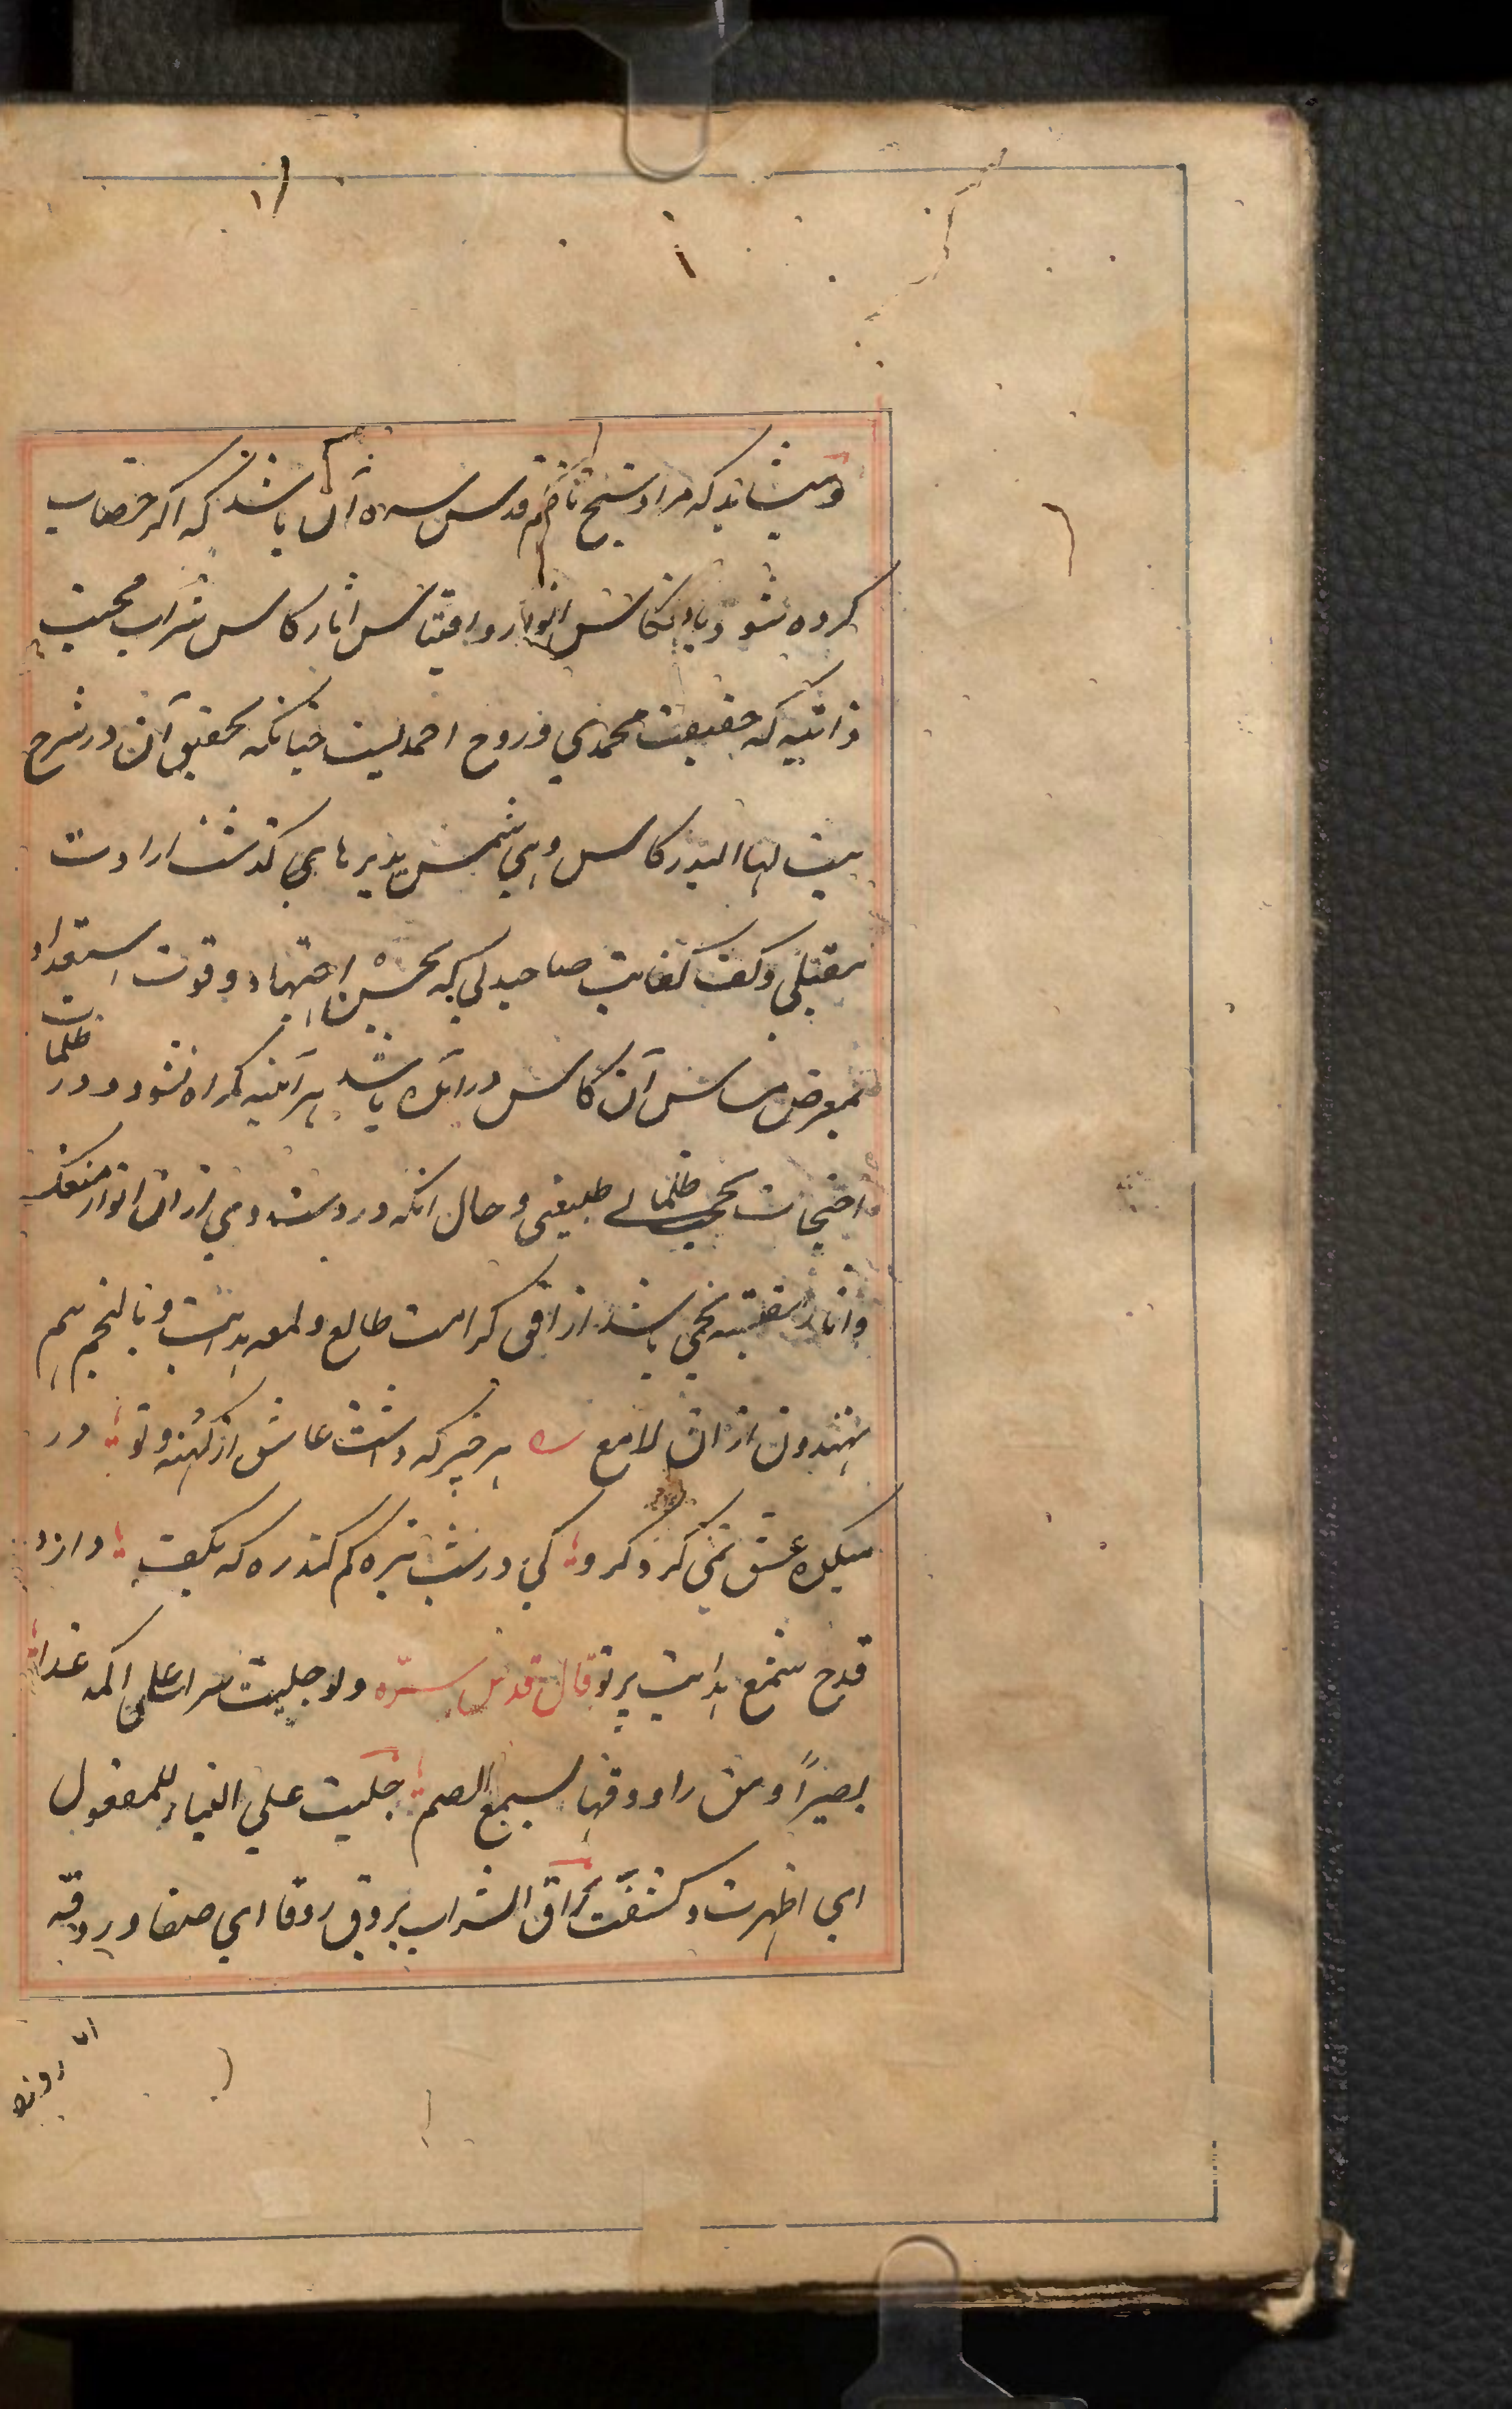 و میشاید که مراد شیخ ناظم قدس سره آن باشد که اگر خضاب
کرده شود بانعکاس انوار و اقتباس اثار کاس شراب محبت
ذاتیه که حقیقت محمدی و روح احمدیست چنانکه تحقیق آن در شرح
بیت لها البدر کاس وهی شمس یدیرها می گذشت ارادت
مقبلی و کف کفایت صاحبدلی که بحسن اجتهاد و قوت استعداد
بمعرض مساس آن کاس درآمده باشد هرآئینه گمراه نشود و در ظلمات
احتجاب بحجب ظلمانی طبیعی و حال انکه در دست وی از ان انوار منعکس
و اثار مقتبسه نجمی باشد از افق کرامت طالع و لمعه هدایت و بالنجم هم
یهتدون از ان لامع هر چیز که داشت عاشق از کهنه و نو در
میکده عشق تمی کرد کرو کی در شب تیره کم کند ره که بکف دارد
قدح شمع هدایت پرتو قال قدس سره ولو جلیت سرا علی اکمه غدا
بصیراً ومن راووقها یسمع الصم جلیت علی البناء للمفعول
ای اظهرت و کشفت راق الشراب یروق روقا ای صفا و روقه